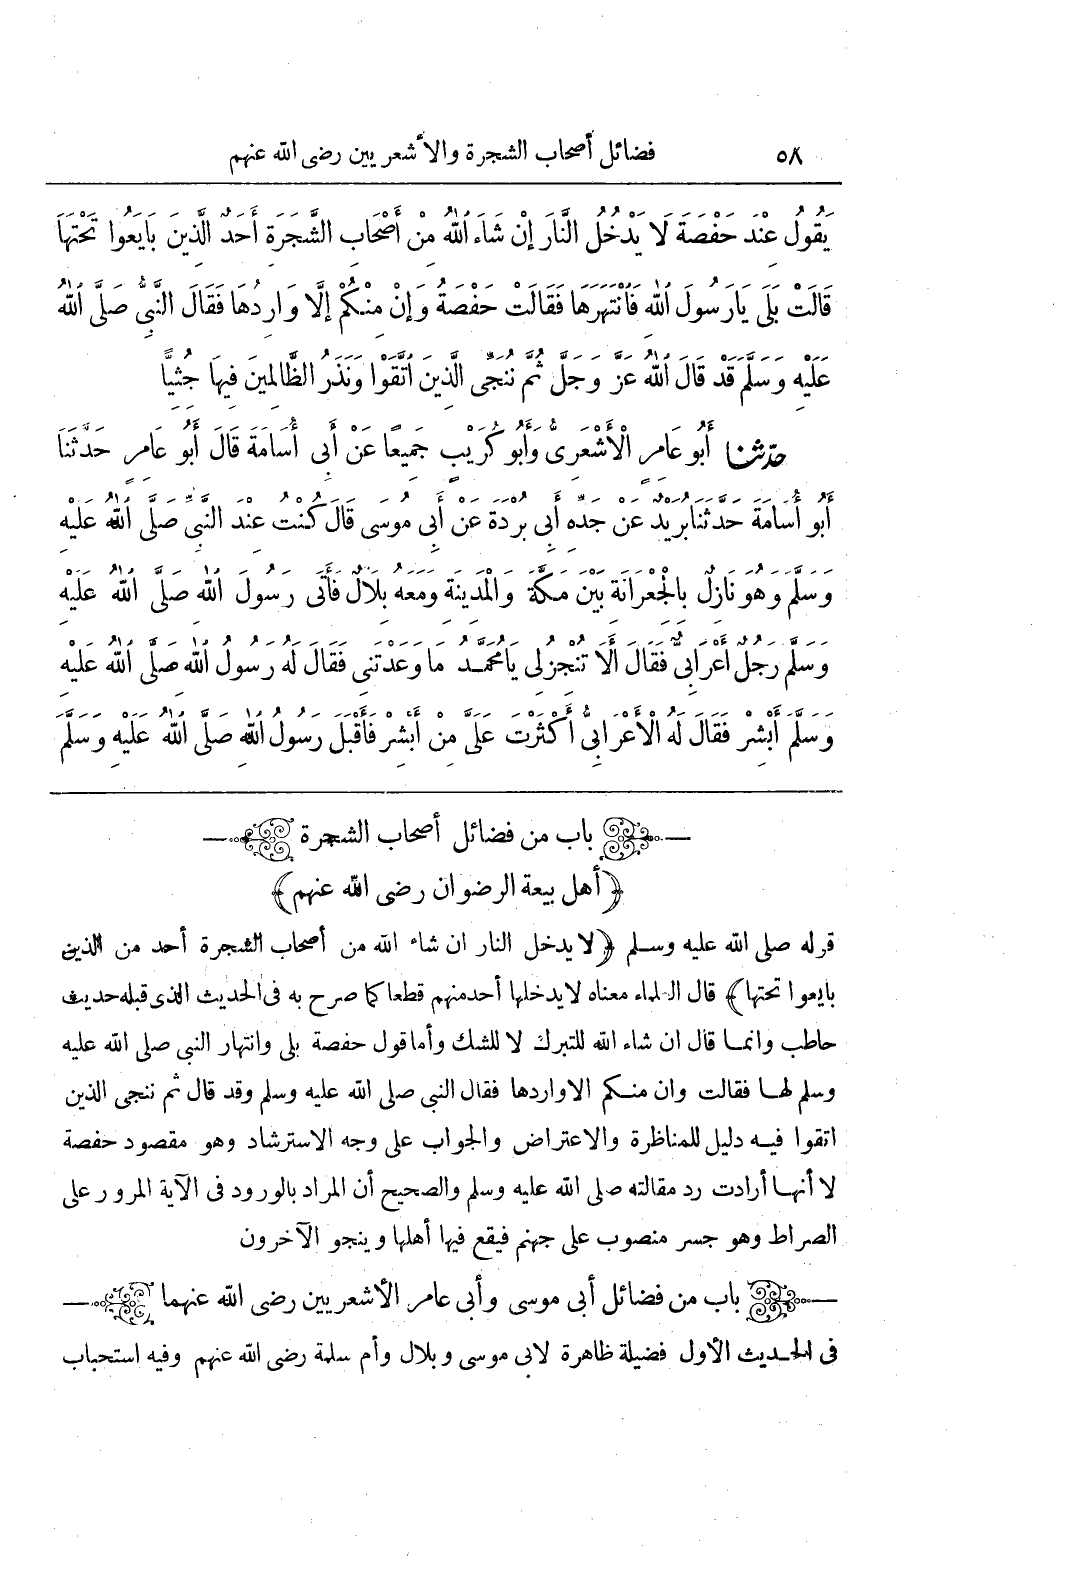 ٥٨ فضائل أصحاب الشجرة والأشعريين رضى الله عنهم
يَقُولُ عِنْدَ حَفْصَةَ لَا يَدْخُلُ النَّارَ إِنْ شَاءَ اللّٰهُ مِنْ أَصْحَابِ الشَّجَرَةِ أَحَدٌ الَّذِينَ بَايَعُوا تَحْتَهَا
قَالَتْ بَلَى يَارَسُولَ اللّٰهِ فَانْتَهَرَهَا فَقَالَتْ حَفْصَةُ وَإِنْ مِنْكُمْ إِلَّا وَارِدُهَا فَقَالَ النَّبِىُّ صَلَّى اللّٰهُ
عَلَيْهِ وَسَلَّمَ قَدْ قَالَ اللّٰهُ عَزَّ وَجَلَّ ثُمَّ نُنَجِّى الَّذِينَ اتَّقَوْا وَنَذَرُ الظَّالِمِينَ فِيهَا جِثِيًّا
حدثنا أَبُو عَامِرٍ الْأَشْعَرِىُّ وَأَبُو كُرَيْبٍ جَمِيعًا عَنْ أَبِى أُسَامَةَ قَالَ أَبُو عَامِرٍ حَدَّثَنَا
أَبُو أُسَامَةَ حَدَّثَنَا بُرَيْدٌ عَنْ جَدِّهِ أَبِى بُرْدَةَ عَنْ أَبِى مُوسَى قَالَ كُنْتُ عِنْدَ النَّبِىِّ صَلَّى اللّٰهُ عَلَيْهِ
وَسَلَّمَ وَهُوَ نَازِلٌ بِالْجِعْرَانَةِ بَيْنَ مَكَّةَ وَالْمَدِينَةِ وَمَعَهُ بِلَالٌ فَأَتَى رَسُولَ اللّٰهِ صَلَّى اللّٰهُ عَلَيْهِ
وَسَلَّمَ رَجُلٌ أَعْرَابِىٌّ فَقَالَ أَلَا تُنْجِزُ لِى يَامُحَمَّدُ مَا وَعَدْتَنِى فَقَالَ لَهُ رَسُولُ اللّٰهِ صَلَّى اللّٰهُ عَلَيْهِ
وَسَلَّمَ أَبْشِرْ فَقَالَ لَهُ الْأَعْرَابِىُّ أَكْثَرْتَ عَلَىَّ مِنْ أَبْشِرْ فَأَقْبَلَ رَسُولُ اللّٰهِ صَلَّى اللّٰهُ عَلَيْهِ وَسَلَّمَ
باب من فضائل أصحاب الشجرة
﴿أهل بيعة الرضوان رضى الله عنهم﴾
قوله صلى الله عليه وسلم ﴿لا يدخل النار ان شاء الله من أصحاب الشجرة أحد من الذين
بايعوا تحتها﴾ قال العلماء معناه لا يدخلها أحد منهم قطعا كما صرح به فى الحديث الذى قبله حديث
حاطب وانما قال ان شاء الله للتبرك لا للشك وأما قول حفصة بلى وانتهار النبى صلى الله عليه
وسلم لها فقالت وان منكم الا واردها فقال النبى صلى الله عليه وسلم وقد قال ثم ننجى الذين
اتقوا فيه دليل للمناظرة والاعتراض والجواب على وجه الاسترشاد وهو مقصود حفصة
لا أنها أرادت رد مقالته صلى الله عليه وسلم والصحيح أن المراد بالورود فى الآية المرور على
الصراط وهو جسر منصوب على جهنم فيقع فيها أهلها وينجو الآخرون
باب من فضائل أبى موسى وأبى عامر الأشعريين رضى الله عنهما
فى الحديث الأول فضيلة ظاهرة لابى موسى وبلال وأم سلمة رضى الله عنهم وفيه استحباب